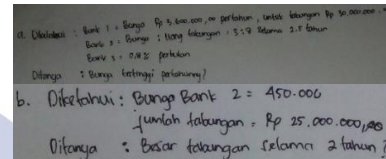 a. Diketahui : Bank 1 = Bunga Rp 3.600.000,00 pertahun, untuk tabungan Rp 30.000.000
Bank 2 = Bunga : Uang tabungan = 3 : 8 Selama 2.5 tahun
Bank 3 = 0.8 % perbulan
Ditanya : Bunga tertinggi pertahunny?
b. Diketahui : Bunga Bank 2 = 450.000
Jumlah tabungan = Rp 25.000.000,00
Ditanya : Besar tabungan selama 2 tahun ?